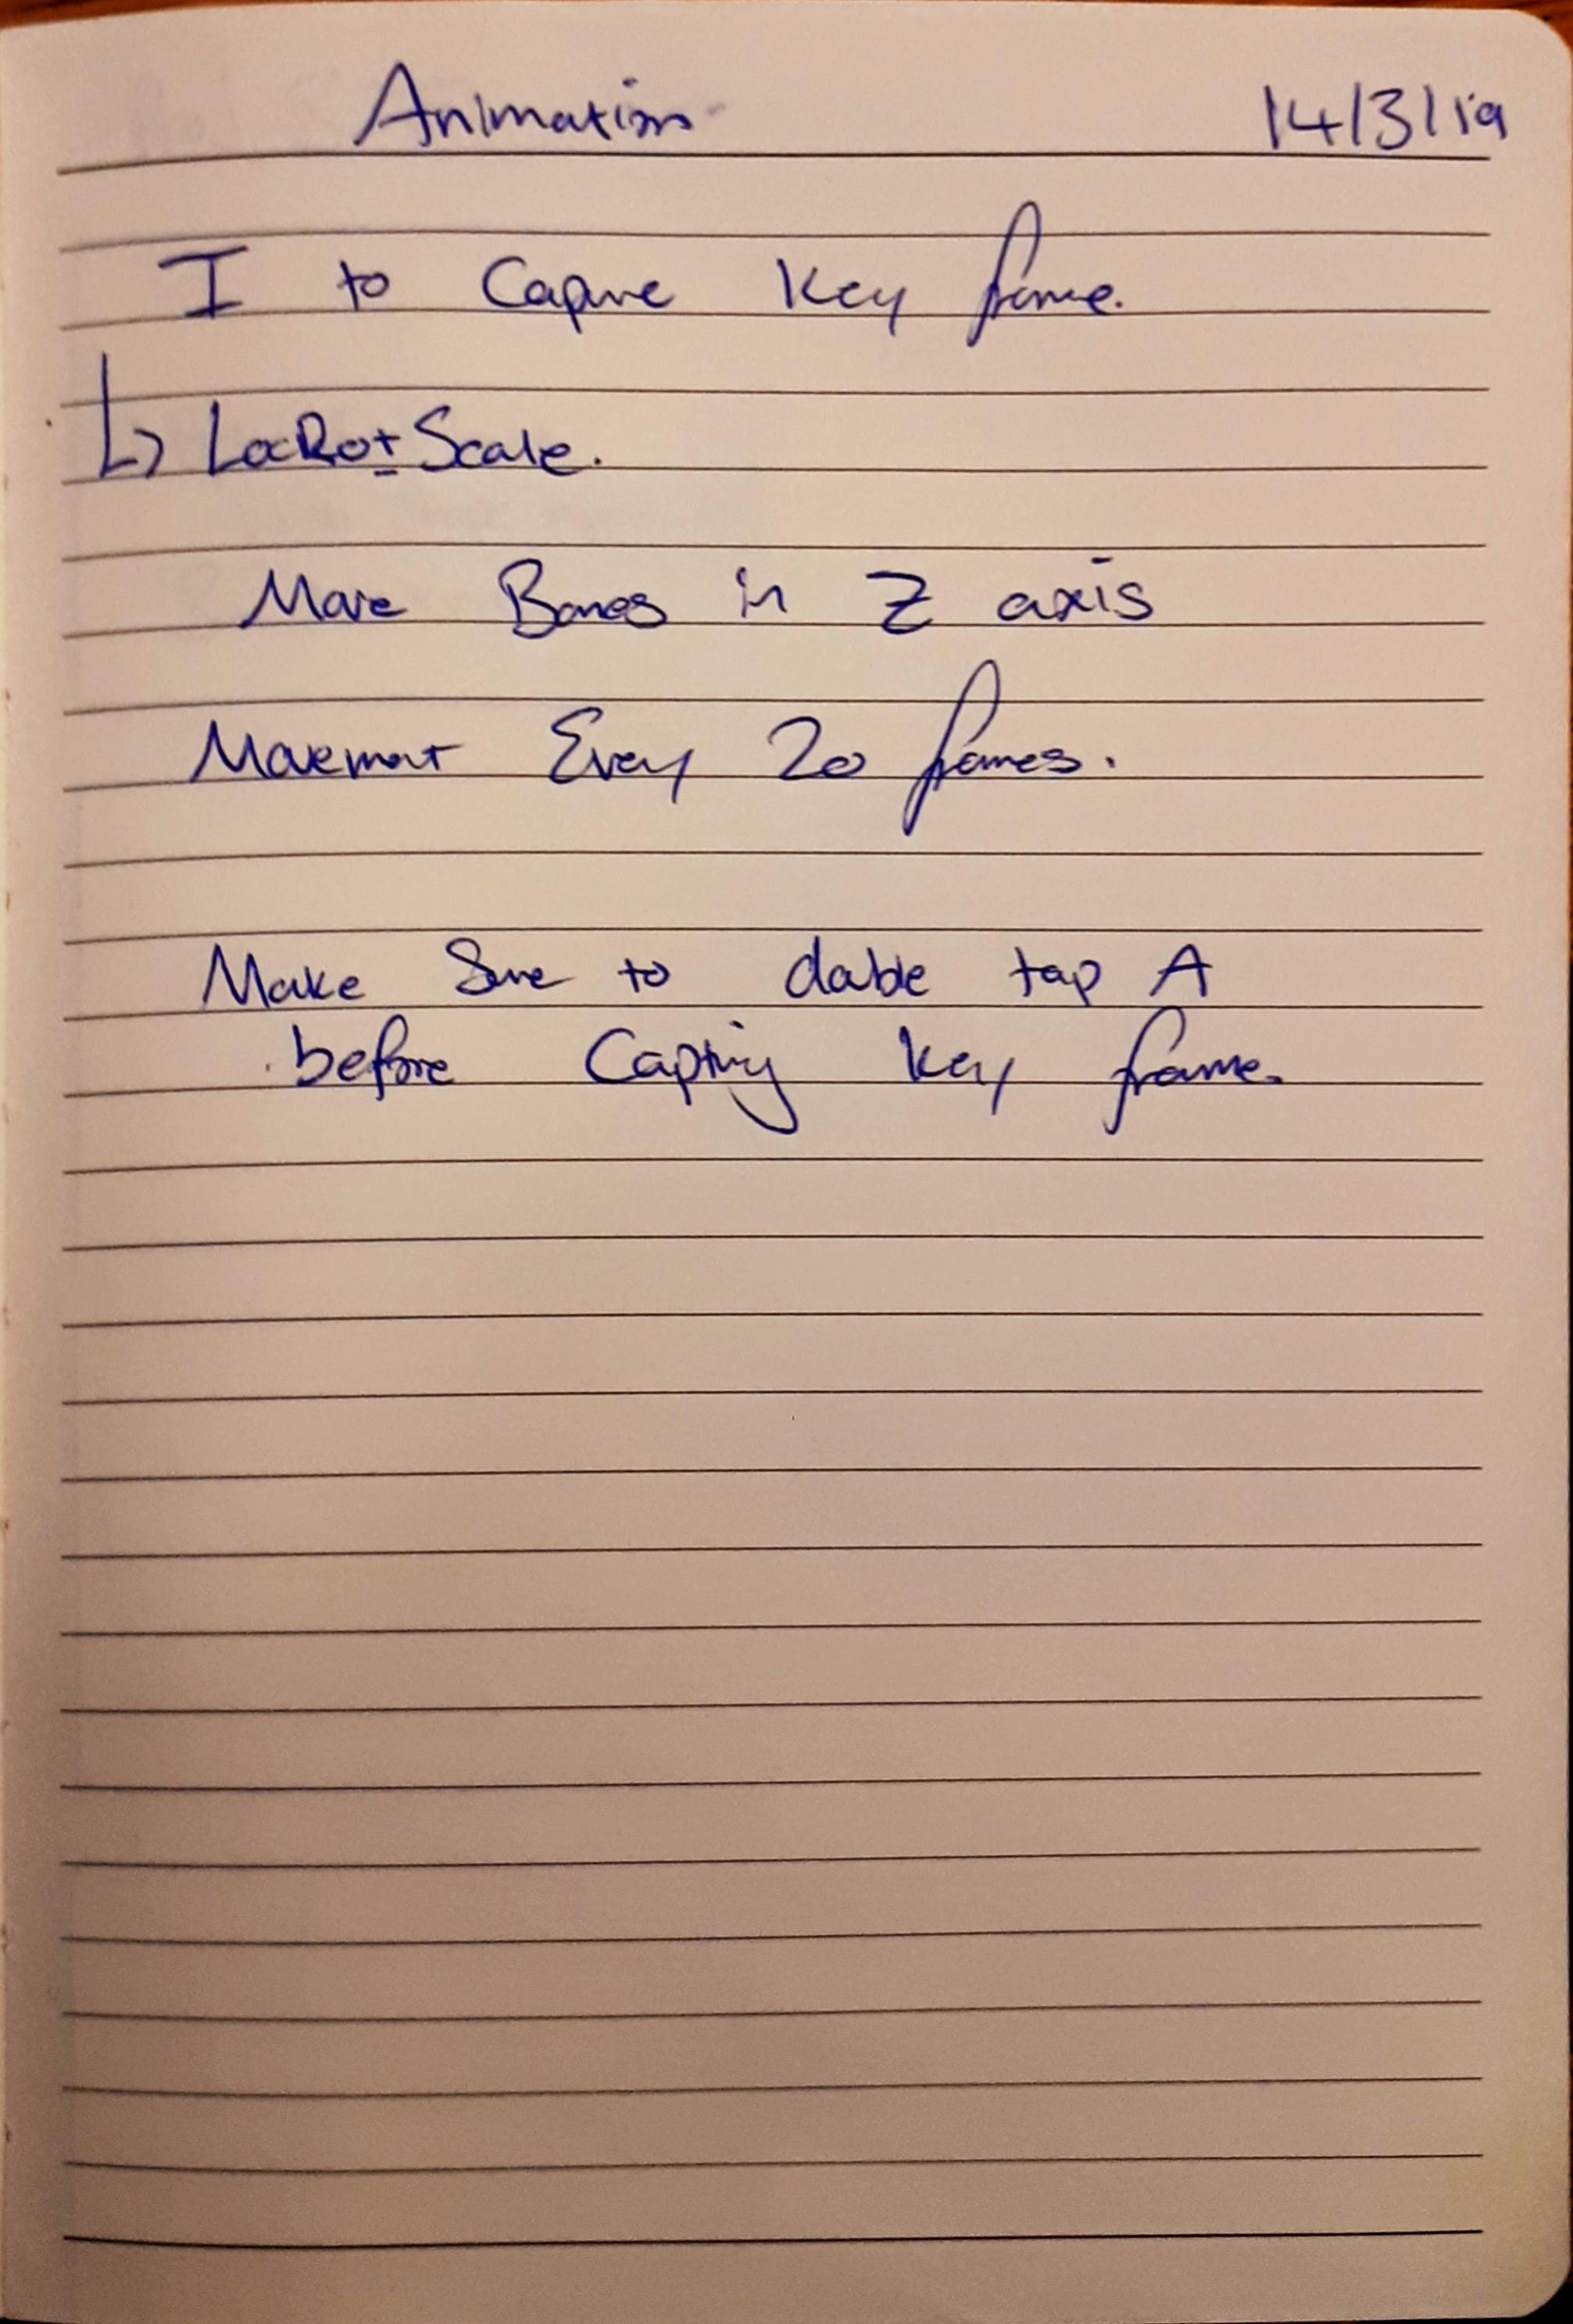 Animation 14/3/19
I to Capure Key frame.
↳ LocRotScale.
Move Bones in Z axis
Movement Every 20 frames.
Make Sure to double tap A
before Capturing Key frame.